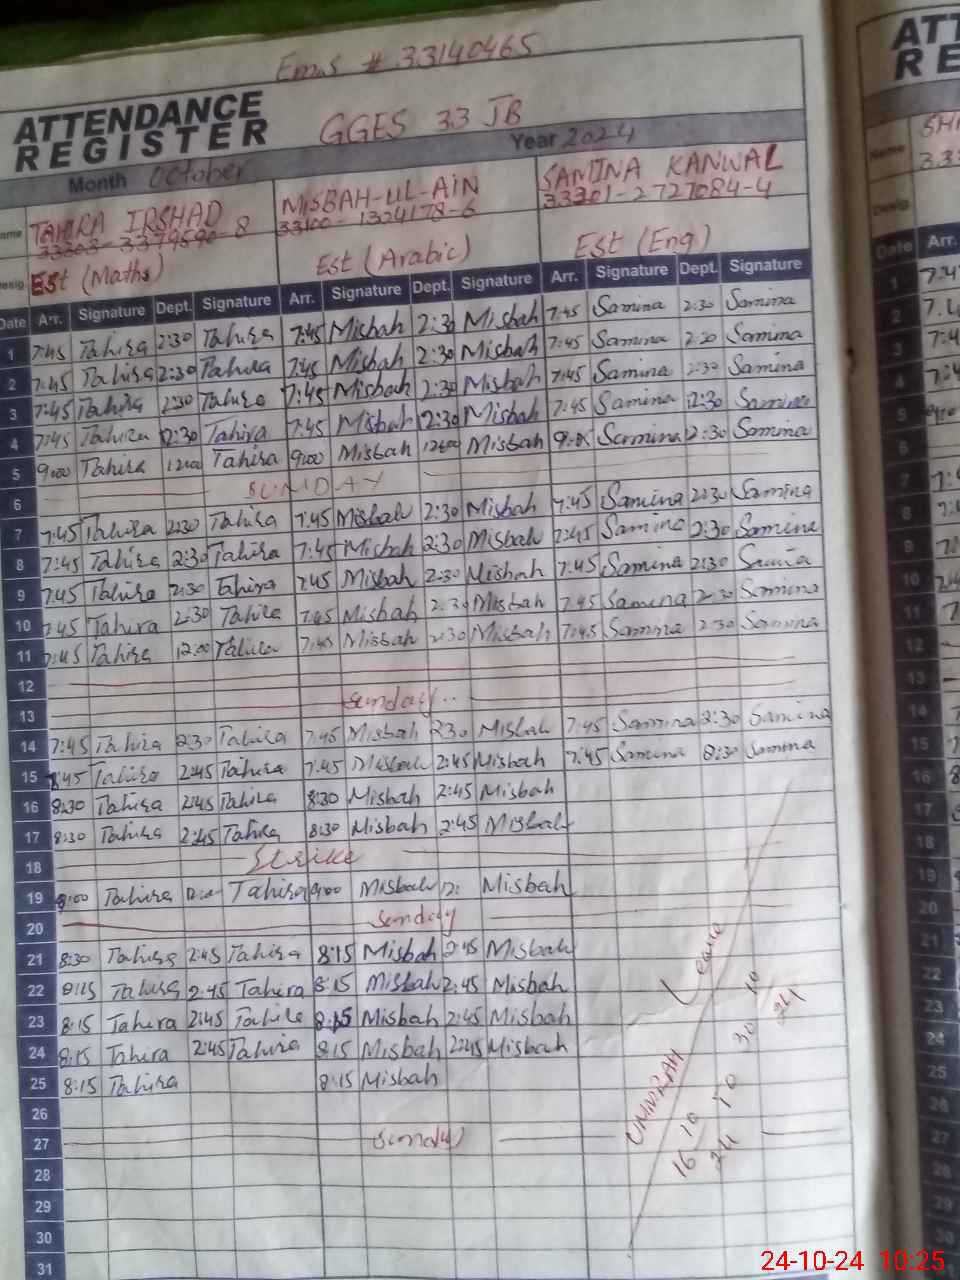 Emis # 33140465
ATTENDANCE REGISTER GGES 33 JB
Month October Year 2024
Name TAHIRA IRSHAD MISBAH-UL-AIN SAMINA KANWAL
33100-1324178-6 33301-2727084-4
Desig. Est (Maths) Est (Arabic) Est (Eng)
Date Arr. Signature Dept. Signature Arr. Signature Dept. Signature Arr. Signature Dept. Signature
1 7:45 Tahira 2:30 Tahira 7:45 Misbah 2:30 Misbah 7:45 Samina 2:30 Samina
2 7:45 Tahira 2:30 Tahira 7:45 Misbah 2:30 Misbah 7:45 Samina 2:30 Samina
3 7:45 Tahira 2:30 Tahira 7:45 Misbah 2:30 Misbah 7:45 Samina 2:30 Samina
4 7:45 Tahira 2:30 Tahira 7:45 Misbah 2:30 Misbah 7:45 Samina 2:30 Samina
5 9:00 Tahira 1200 Tahira 9:00 Misbah 1200 Misbah Samina 2:30 Samina
6 SUNDAY
7 7:45 Tahira 2:30 Tahira 7:45 Misbah 2:30 Misbah 7:45 Samina 2:30 Samina
8 7:45 Tahira 2:30 Tahira 7:45 Misbah 2:30 Misbah 7:45 Samina 2:30 Samina
9 7:45 Tahira 2:30 Tahira 7:45 Misbah 2:30 Misbah 7:45 Samina 2:30 Samina
10 7:45 Tahira 2:30 Tahira 7:45 Misbah 2:30 Misbah 7:45 Samina 2:30 Samina
11 7:45 Tahira 12:00 Tahira 7:45 Misbah 2:30 Misbah 7:45 Samina 2:30 Samina
12
13 Sunday
14 7:45 Tahira 2:30 Tahira 7:45 Misbah 2:30 Misbah 7:45 Samina 2:30 Samina
15 Tahira 2:45 Tahira 7:45 Misbah 2:45 Misbah 7:45 Samina Samina
16 8:30 Tahira 2:45 Tahira 8:30 Misbah 2:45 Misbah
17 8:30 Tahira 2:45 Tahira 8:30 Misbah 2:45 Misbah
18 Strike
19 Tahira Tahira 9:00 Misbah 12: Misbah
20 Sunday
21 8:30 Tahira 2:45 Tahira 8:15 Misbah 2:45 Misbah
22 8:15 Tahira 2:45 Tahira 8:15 Misbah 2:45 Misbah
23 8:15 Tahira 2:45 Tahira 8:15 Misbah 2:45 Misbah
24 8:15 Tahira 2:45 Tahira 8:15 Misbah 2:45 Misbah
25 8:15 Tahira 8:15 Misbah
26
27 Sunday
28
29
30
31
UMMRAH Leave
16 10 24 TO 30 10 24
ATT
RE
Name SH
333
Desig.
Date Arr.
1 7:4
2
3 7:4
4
5
6
7
8
9
10
11
12
13
14
15
16
17
18
19
20
21
22
23
24
25
26
27
28
29
30
24-10-24 10:25